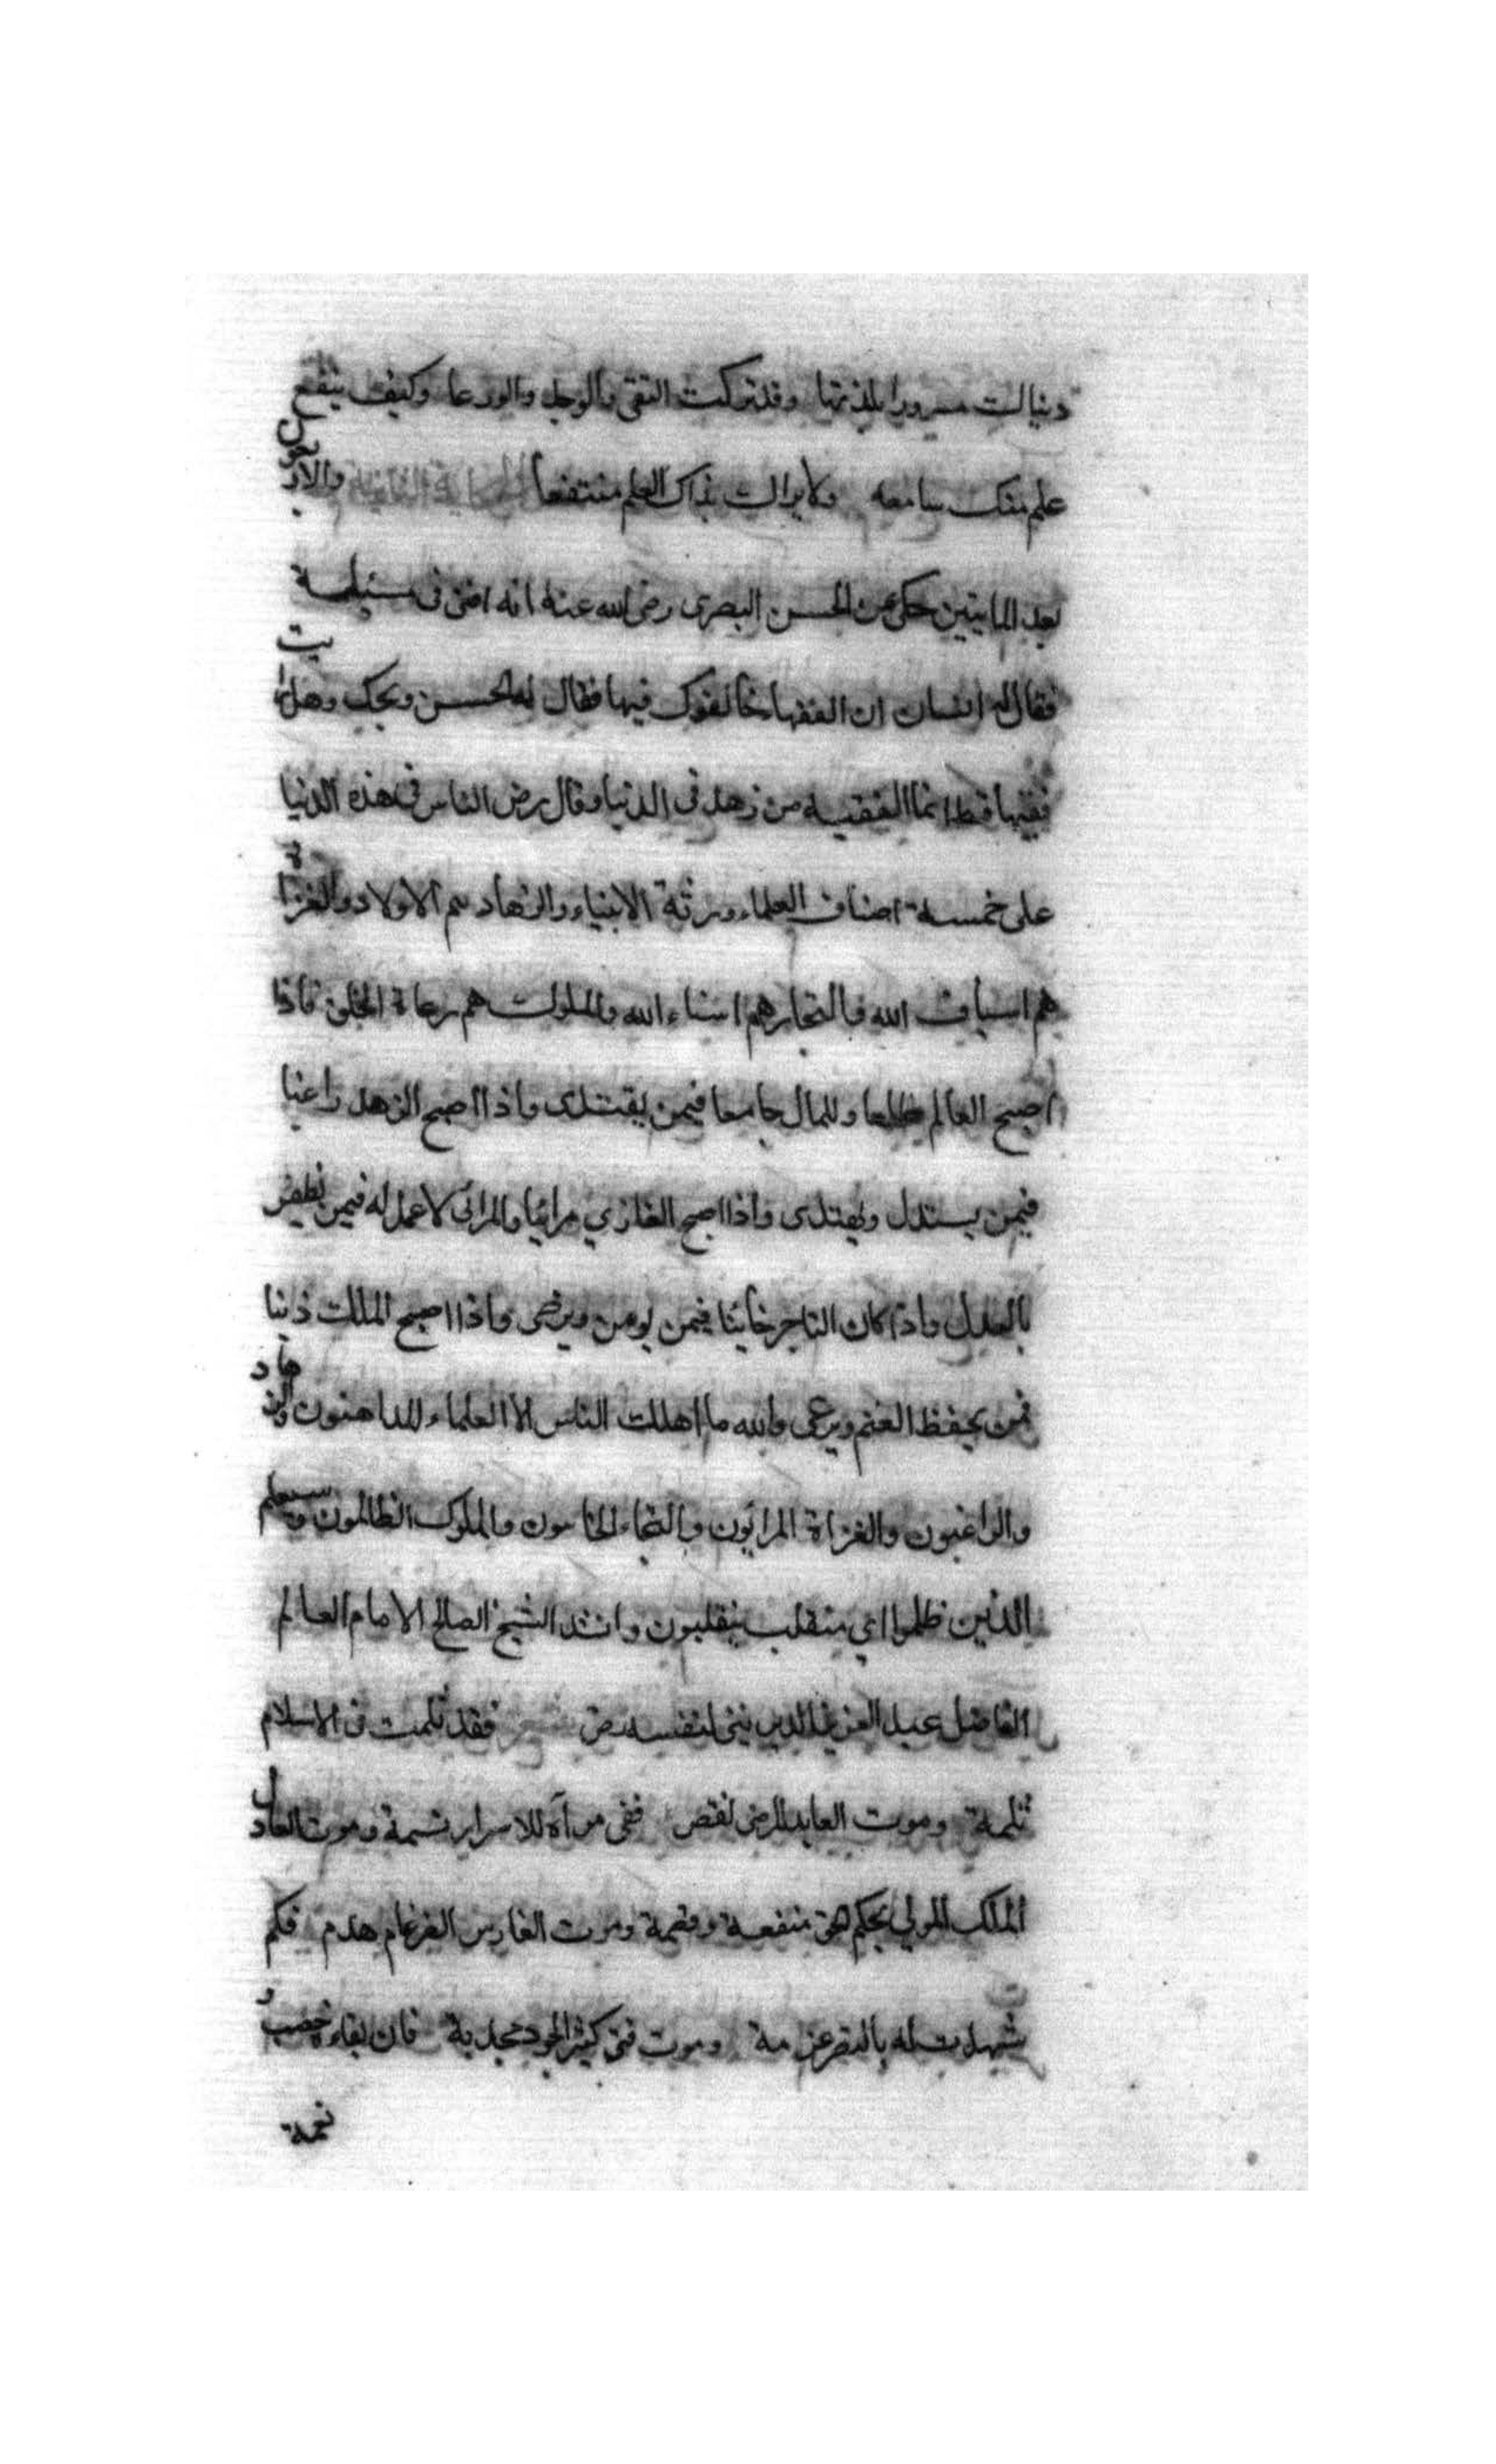 دنياك مسرورا بلذتها وقد تركت التقى والوجل والورعا وكيف ينفع
علم منك سامعه ولا يراك بذاك العلم منتفعا الحكاية الثانية والاربعون
بعد المايتين حكى عن الحسن البصرى رضى الله عنه انه افتى فى مسئلة
فقال له انسان ان الفقها خالفوك فيها فقال له الحسن ويحك وهل رايت
فقيها قط انما الفقيه من زهد فى الدنيا وقال رض الناس فى هذه الدنيا
على خمسة اصناف العلماء ورثة الانبياء والزهاد هم الاولاد والغزاة
هم اسياف الله والتجار هم امناء الله والملوك هم رعاة الخلق فاذا
اصبح العالم طامعا وللمال جامعا فيمن يقتدى واذا اصبح الزهد راغبا
فيمن يستدل ويهتدى واذا اصبح الغازي مرائيا والمرائى لا عمل له فيمن يظفر
بالعدل واذا كان التاجر خائنا فيمن يومن ويرضى واذا اصبح الملك ذئبا
فمن يحفظ الغنم ويرعى والله ما اهلك الناس الا العلماء المداهنون والزهاد
والراغبون والغزاة المرائون والتجار الخائنون والملوك الظالمون وسيعلم
الذين ظلموا اي منقلب ينقلبون وانشد الشيخ الصالح الامام العالم
الفاضل عبد العزيز الديرينى لنفسه رض شعر فقد ثلمت فى الاسلام
ثلمة وموت العابد المرضى نقص ففى مرآه للاسرار نسمة وموت العادل
الملك المولي بحكم الحق منقصة وقصمة وموت الفارس الضرغام هدم فكم
شهدت له بالنصر عزمة وموت فتى كثير الجود مجدبة فان بقاءه خصب و
نعمة